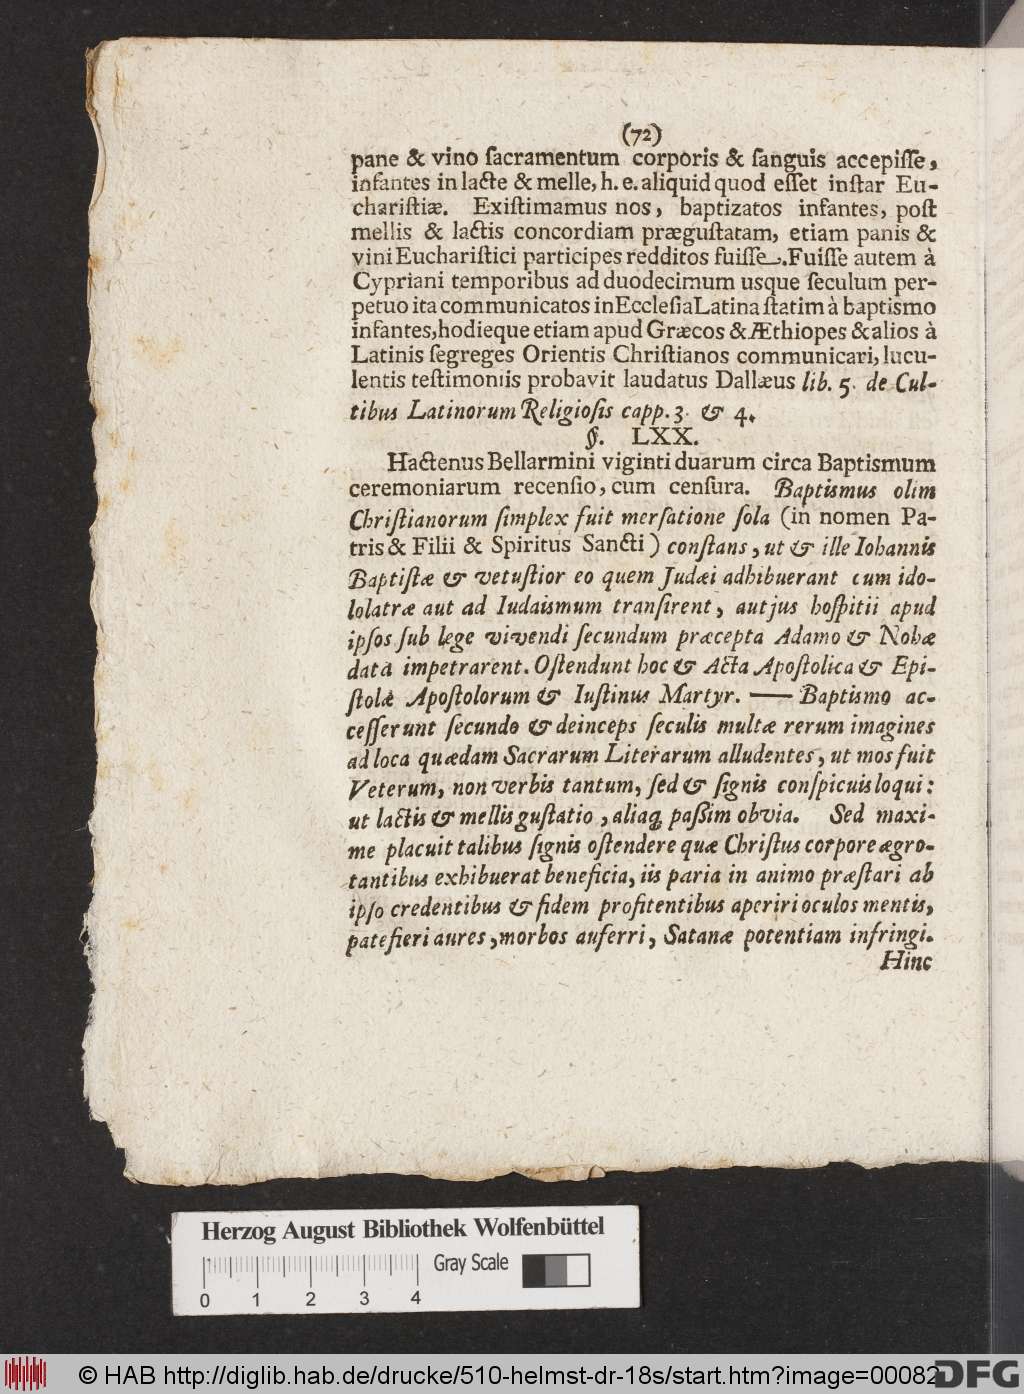 (72)
pane & vino ſacramentum corporis & ſanguis accepiſſe,
infantes in lacte & melle, h. e. aliquid quod eſſet inſtar Eu-
chariſtiæ. Exiſtimamus nos, baptizatos infantes, poſt
mellis & lactis concordiam præguſtatam, etiam panis &
vini Euchariſtici participes redditos fuiſſe. Fuiſſe autem à
Cypriani temporibus ad duodecimum usque ſeculum per-
petuo ita communicatos in Eccleſia Latina ſtatim à baptismo
infantes, hodieque etiam apud Græcos & Æthiopes & alios à
Latinis ſegreges Orientis Chriſtianos communicari, lucu-
lentis teſtimoniis probavit laudatus Dallæus lib. 5. de Cul-
tibus Latinorum Religioſis capp. 3. & 4.
§. LXX.
Hactenus Bellarmini viginti duarum circa Baptismum
ceremoniarum recenſio, cum cenſura. Baptismus olim
Chriſtianorum ſimplex fuit merſatione ſola (in nomen Pa-
tris & Filii & Spiritus Sancti) conſtans, ut & ille Iohannis
Baptiſtæ & vetuſtior eo quem Judæi adhibuerant cum ido-
lolatræ aut ad Iudaismum tranſirent, aut jus hoſpitii apud
ipſos ſub lege vivendi ſecundum præcepta Adamo & Nohæ
data impetrarent. Oſtendunt hoc & Acta Apoſtolica & Epi-
ſtolæ Apoſtolorum & Iuſtinus Martyr. — Baptismo ac-
ceſſerunt ſecundo & deinceps ſeculis multæ rerum imagines
ad loca quædam Sacrarum Literarum alludentes, ut mos fuit
Veterum, non verbis tantum, ſed & ſignis conſpicuis loqui:
ut lactis & mellis guſtatio, aliaq; paßim obvia. Sed maxi-
me placuit talibus ſignis oſtendere quæ Chriſtus corpore ægro-
tantibus exhibuerat beneficia, iis paria in animo præſtari ab
ipſo credentibus & fidem profitentibus aperiri oculos mentis,
patefieri aures, morbos auferri, Satanæ potentiam infringi.
Hinc
Herzog August Bibliothek Wolfenbüttel
Gray Scale
0 1 2 3 4
© HAB http://diglib.hab.de/drucke/510-helmst-dr-18s/start.htm?image=00082
DFG